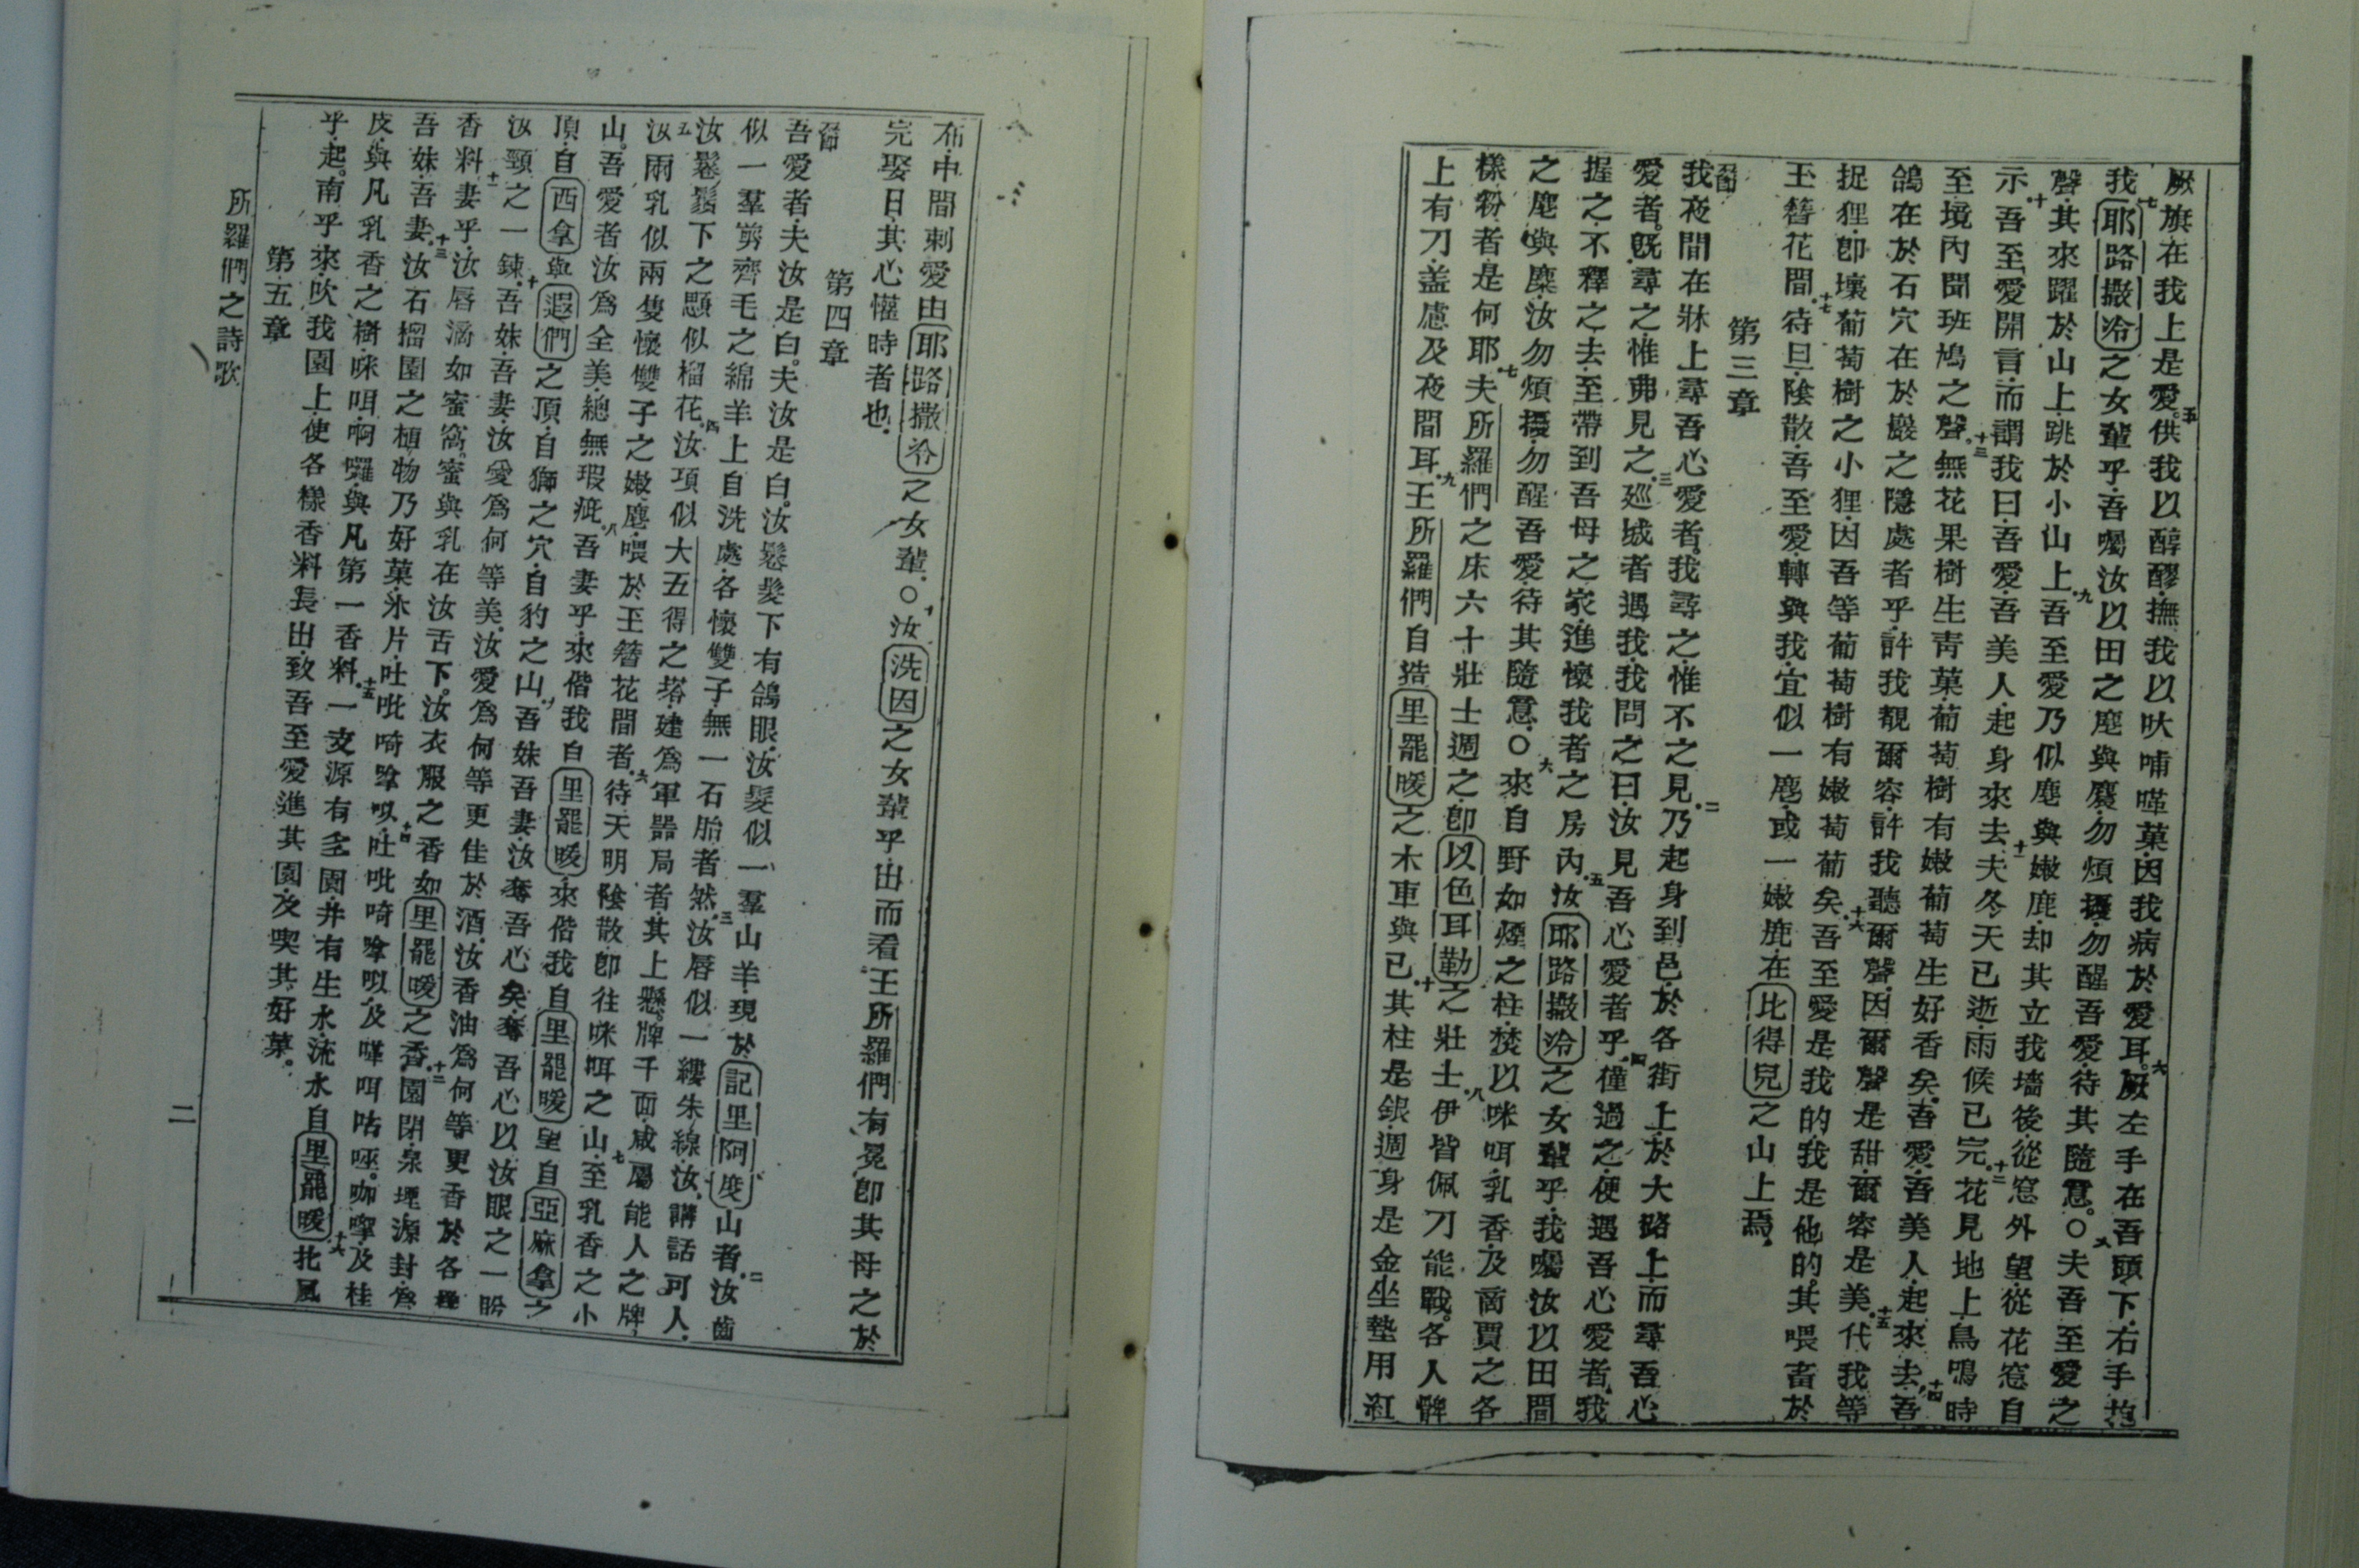 厥旗在我上是愛。五供我以醇醪撫我以吠哺嘆菓因我病於愛耳。六厥左手在吾頭下右手抱
我七耶路撒冷之女輩乎吾囑汝以田之麀與麋勿煩擾勿醒吾愛待其隨意。○八夫吾至愛之
聲其來躍於山上跳於小山上九吾至愛乃似麀與嫩鹿却其立我墻後從窓外望從花窓自
示十吾至愛開言而謂我曰吾愛吾美人起身來去十一夫冬天已逝雨候已完十二花見地上鳥鳴時
至境內聞班鳩之聲十三無花果樹生靑菓葡萄樹有嫩葡萄生好香矣吾愛吾美人起來去十四吾
鴿在於石穴在於巖之隱處者乎許我覩爾容許我聽爾聲因爾聲是甜爾容是美十五代我等
捉狸卽壞葡萄樹之小狸因吾等葡萄樹有嫩萄葡矣十六吾至愛是我的我是他的其喂畜於
玉簪花間十七待旦陰散吾至愛轉與我宜似一麀或一嫩鹿在比得兒之山上焉
第三章
我夜間在牀上尋吾心愛者我尋之惟不之見二乃起身到邑於各街上於大路上而尋吾心
愛者旣尋之惟弗見之三廵城者遇我我問之曰汝見吾心愛者乎四僅過之便遇吾心愛者我
握之不釋之去至帶到吾母之家進懷我者之房內五汝耶路撒冷之女輩乎我囑汝以田間
之麀與麋汝勿煩擾勿醒吾愛待其隨意○六來自野如煙之柱焚以咪咡乳香及商賈之各
樣粉者是何耶七夫所羅們之床六十壯士週之卽以色耳勒之壯士八伊皆佩刀能戰各人髀
上有刀盖慮及夜間耳九王所羅們自造里罷暖之木車與已十其柱是銀週身是金坐墊用紅
布中間刺愛由耶路撒冷之女輩○十一汝洗因之女輩乎出而看王所羅們有冕卽其母之於
完娶日其心懽時者也
第四章
吾愛者夫汝是白夫汝是白汝鬆髮下有鴿眼汝髮似一羣山羊現於記里阿度山者二汝齒
似一羣剪齊毛之綿羊上自洗處各懷雙子無一石胎者然三汝唇似一縷朱線汝講話可人
汝鬆鬚下之顋似榴花四汝項似大五得之塔建爲軍噐局者其上懸牌千面咸屬能人之牌
五汝兩乳似兩隻懷雙子之嫩麀喂於玉簪花間者六待天明陰散卽往咪咡之山至乳香之小
山七吾愛者汝爲全美總無瑕疵八吾妻乎來偕我自里罷暖來偕我自里罷暖望自亞麻拿之
頂自西拿與遐們之頂自獅之穴自豹之山九吾妹吾妻汝奪吾心矣奪吾心以汝眼之一盼
汝頸之一鍊十吾妹吾妻汝愛爲何等美汝愛爲何等更佳於酒汝香油爲何等更香於各樣
香料十一妻乎汝唇滴如蜜窩蜜與乳在汝舌下汝衣服之香如里罷暖之香十二園閉泉堙源封爲
吾妹吾妻十三汝石榴園之植物乃好菓氷片吐吡唥㕥十四吐吡唥㕥及嘆咡咕唑咖嚤及桂
皮與凡乳香之樹咪咡啊囉與凡第一香料十五一支源有多園井有生水流水自里罷暖十六北風
乎起南乎來吹我園上使各樣香料長出致吾至愛進其園及喫其好菓。
第五章
所羅們之詩歌
二